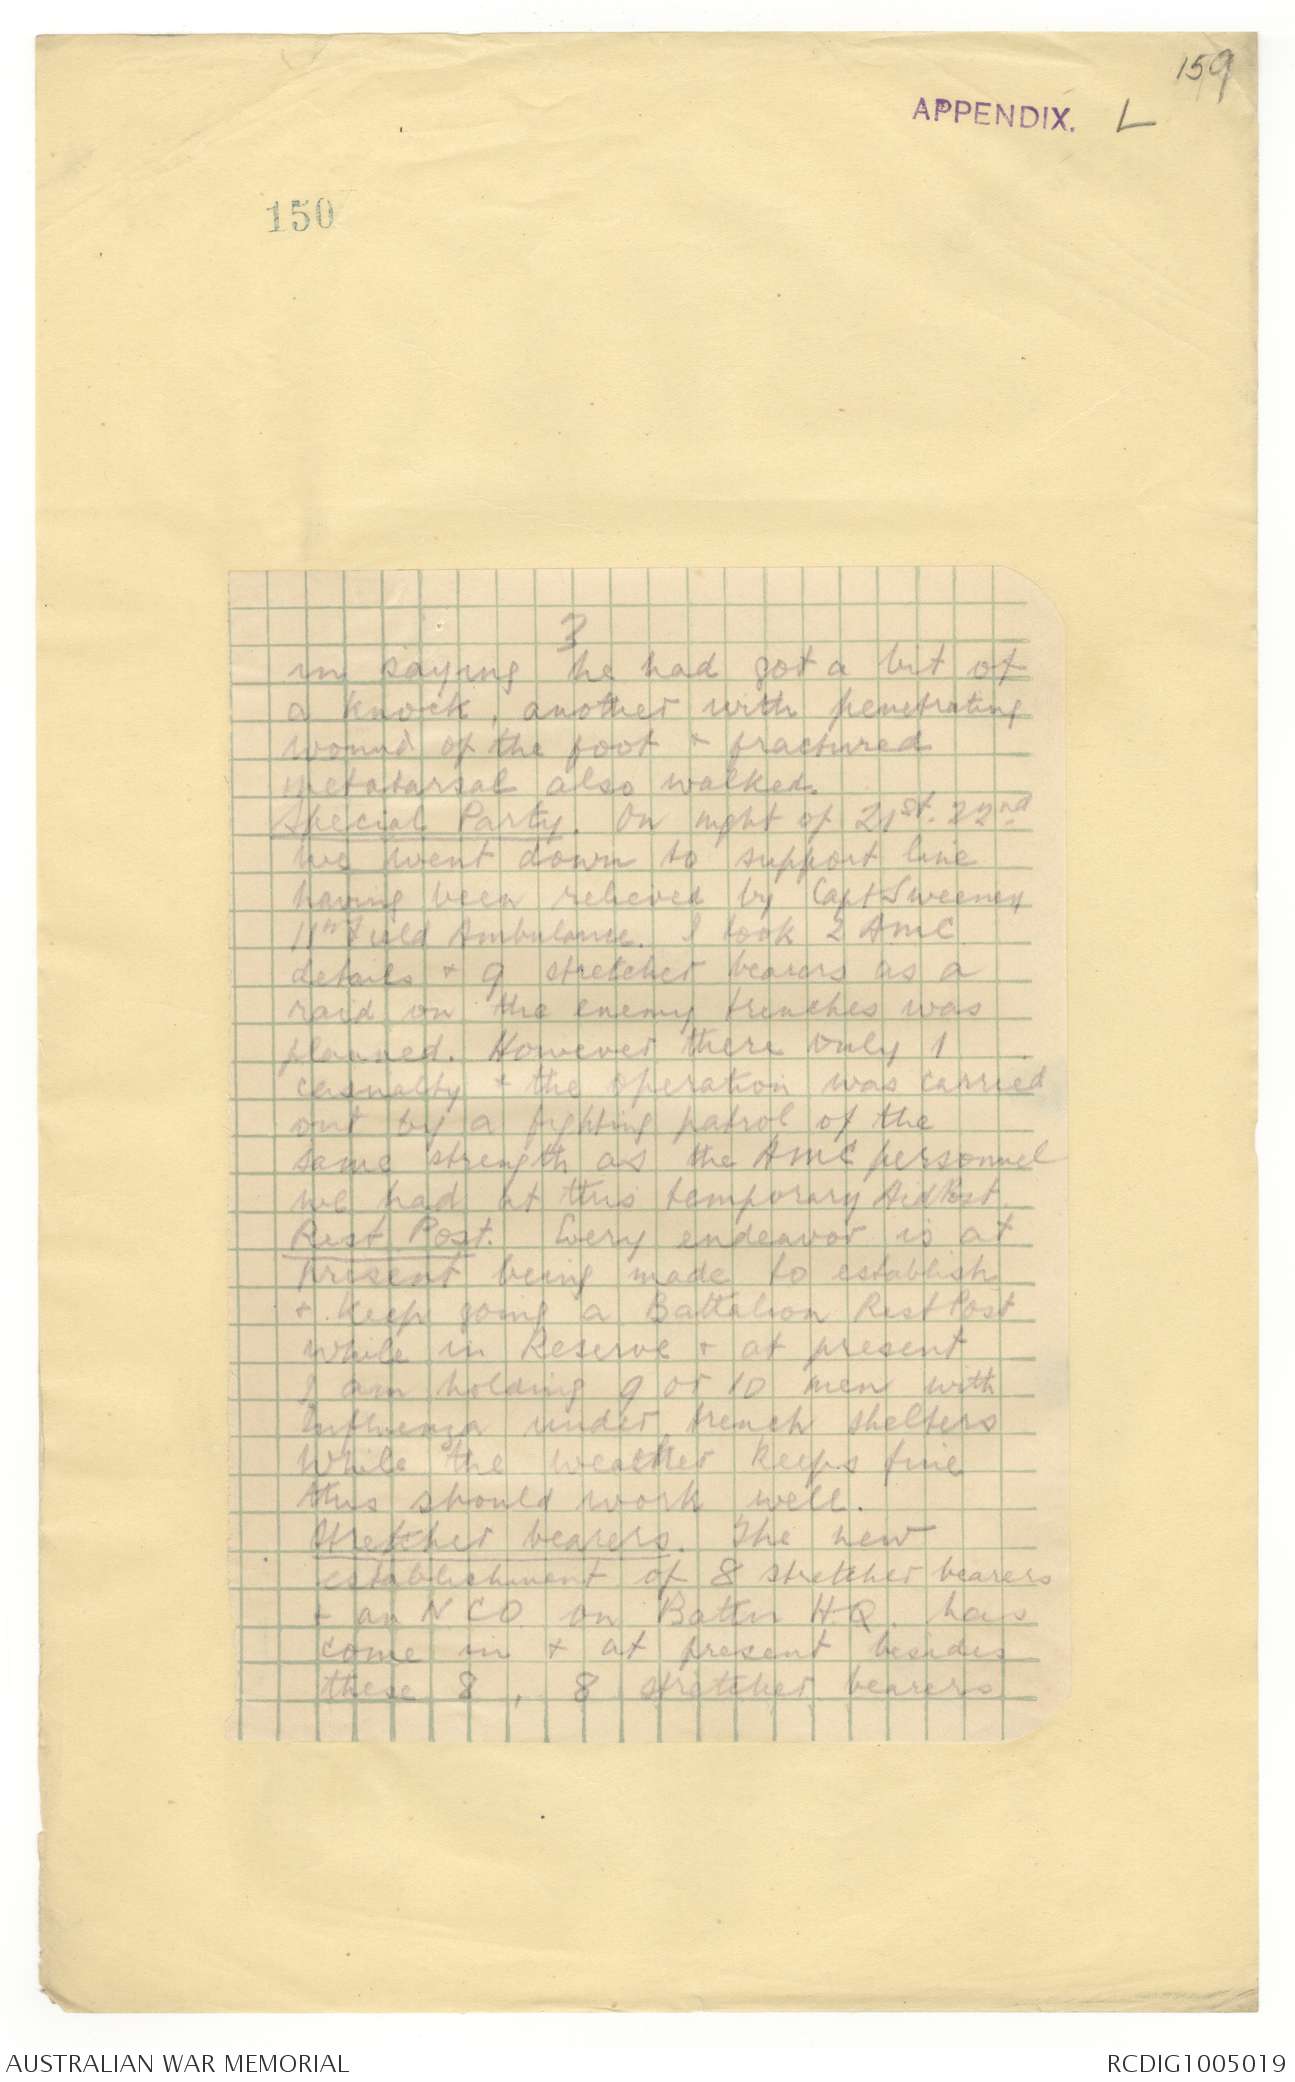 159
APPENDIX. L
150
3
in saying he had got a bit of
a knock, another with penetrating
wound of the foot & fractured
metatarsal also walked.
Special Party. On night of 21st-22nd
we went down to support line
having been relieved by Capt Sweeney
11th Field Ambulance. I took 2 AMC
details & 9 stretcher bearers as a
raid on the enemy trenches was
planned. However there only 1
casualty & the operation was carried
out by a fighting patrol of the
same strength as the AMC personnel
we had at this temporary Aid Post.
Rest Post. Every endeavor is at
present being made to establish
& keep going a Battalion Rest Post
while in Reserve & at present
I am holding 9 or 10 men with
Influenza under trench shelters
While the weather keeps fine
this should work well.
Stretcher bearers. The new
establishment of 8 stretcher bearers
& an N.C.O. on Battn H.Q. has
come in & at present besides
these 8, 8 stretcher bearers
AUSTRALIAN WAR MEMORIAL
RCDIG1005019